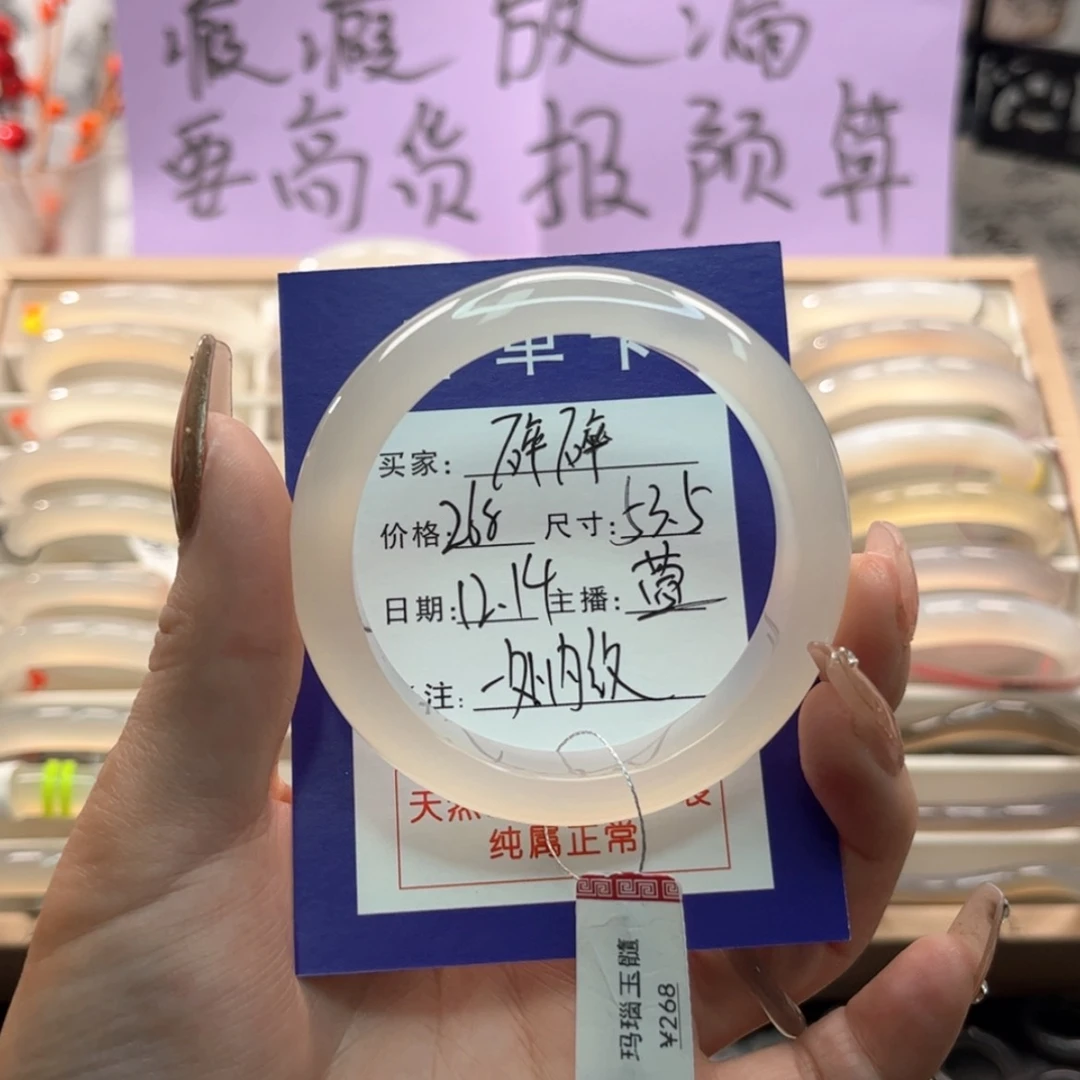 要高货报预算
单卡
买家：碎碎
价格：268 尺寸：53.5
日期：12.14 主播：萱
注：一处内纹
天然
纯属正常
玛瑙玉髓
大268